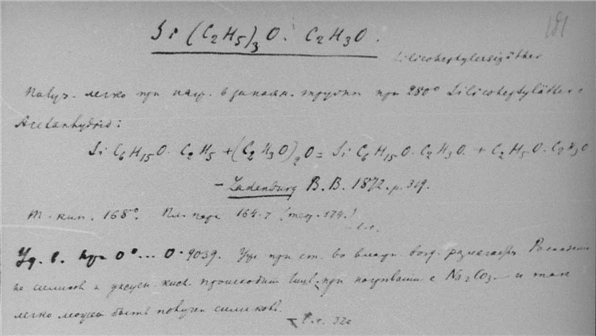 181
Si (C2H5)3O. C2H3O.
Silicoheptylessigäther
Получ. легко при нагр. в запаян. трубки при 280° Silicoheptyläther с
Acetanhydrid:
Si C6H15O. C2H5 + (C2H3O)2O = Si C6H15O. C2H3O + C2H5.O.C2H3O
– Ladenburg B. B. 1872. p. 319.
Т. кип. 168°. Пл. пара 164.7 (теор. 174.)
– l. c.
Уд. в. при 0°... 0.9039. Уже при ст. во влажн. возд. разлагается.
на силикон и уксусн. кисл. происходит при нагревании с Na2CO3 – и так
легко может быть получен силикон.
l. c. 320